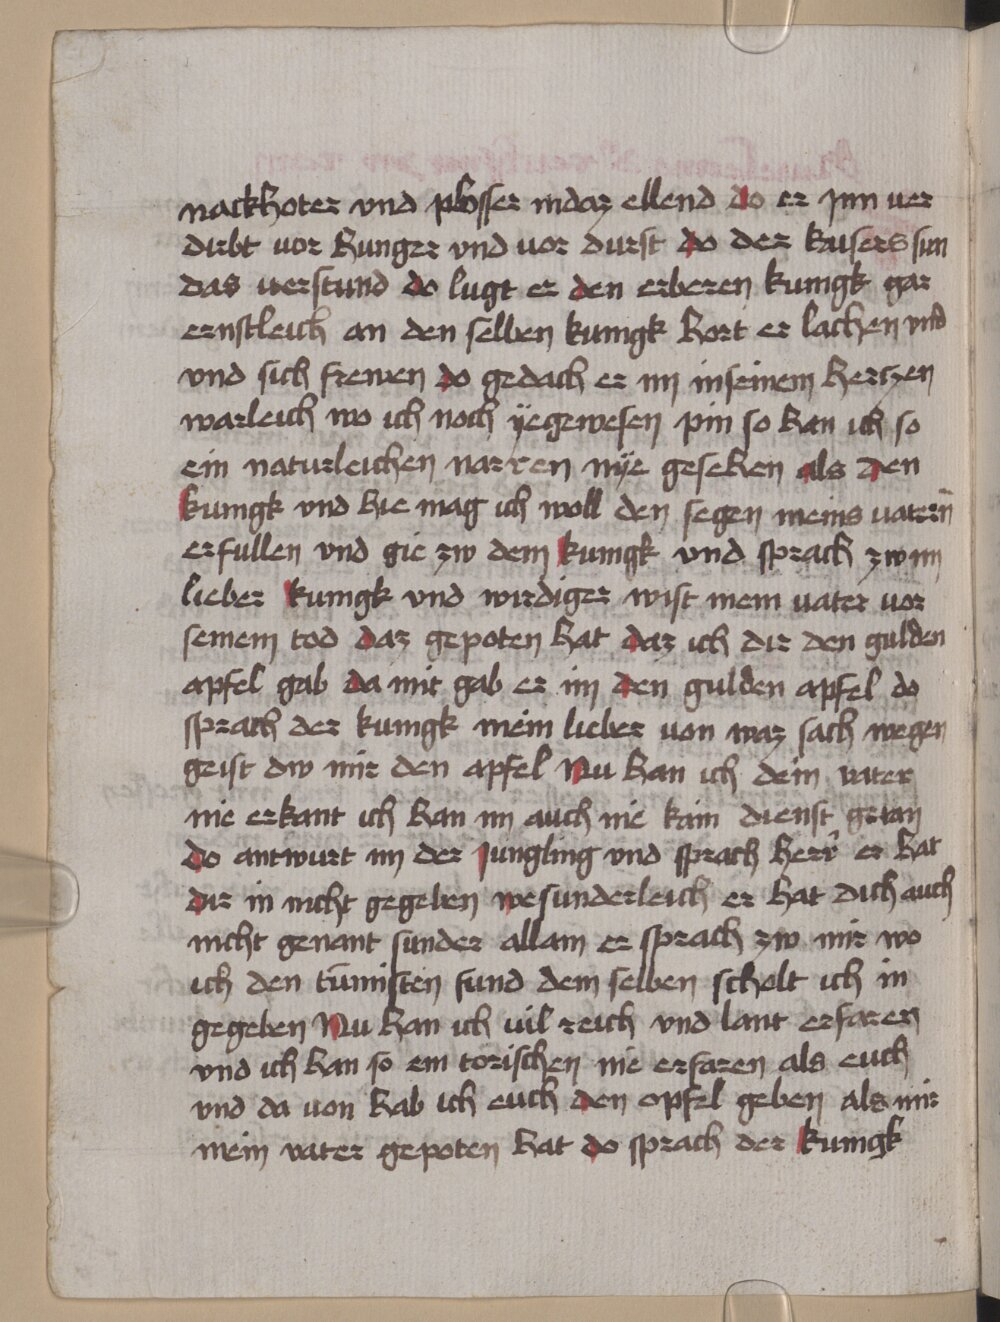 nackhoter vnd plosser indaz ellend do er jnn ver
dirbt vor hunger vnd vor durst do der kaisers sun
das verstund do lugt er den erberen kunigk gar
ernstleich an den selben kunigk hort er lachen vnd
vnd sich frewen do gedach er im inseinem hertzen
warleich wo ich noch ÿegewesen pin so han ich so
ein naturleichen narren nÿe gesehen als den
kunigk vnd hie mag ich woll den segen meins vatern
erfullen vnd gie zw dem kunigk vnd sprach zw im
lieber kunigk vnd wirdiger wist mein vater vor
seinem tod daz gepoten hat daz ich dir den gulden
apfel gab da mit gab er im den gulden apfel do
sprach der kunigk mein lieber von waz sach wegen
geist dw mir den apfel Nu han ich dein vater
nie erkant ich han im auch nie kain dienst getan
do antwurt im der jungling vnd sprach herr er hat
dir in nicht gegeben wesunderleich er hat dich auch
nicht genant sunder allain er sprach zw mir wo
ich den tumisten fund dem selben scholt ich in
gegeben Nu han ich vil reich vnd lant erfaren
vnd ich han so ein torischen nie erfaren als euch
vnd da von hab ich euch den opfel geben als mir
mein vater gepoten hat do sprach der kunigk